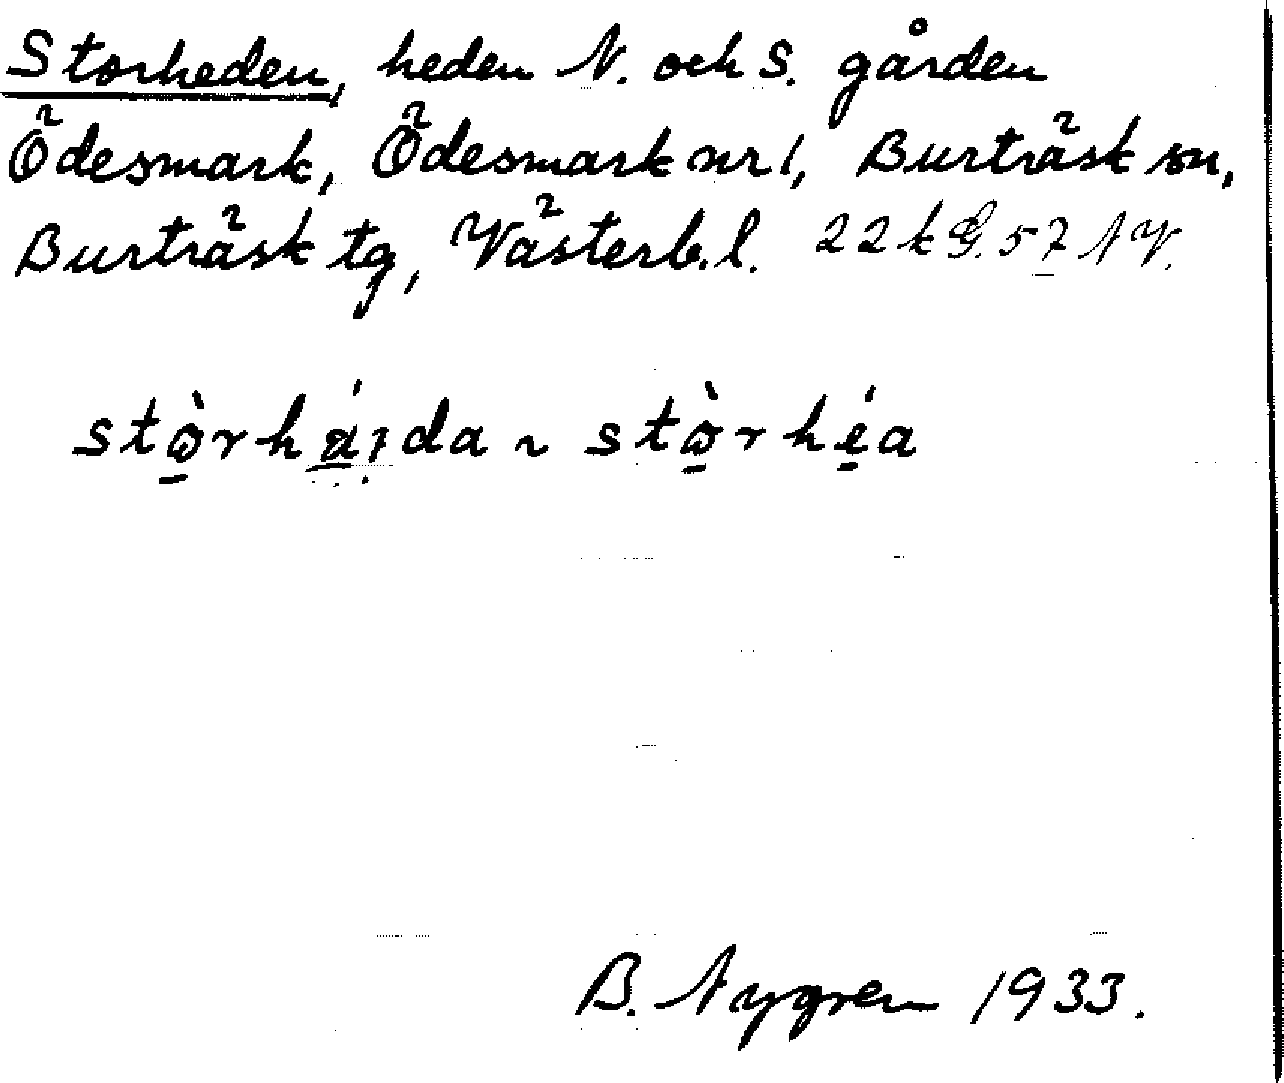 Storheden, heden N. och S. gården
Ödesmark, Ödesmark nr 1, Burträsk sn,
Burträsk tg, Västerb. l. 22 k G. 57 NV.
stòrhá̱ɪda ~ stòrhéa
B. Nygren 1933.